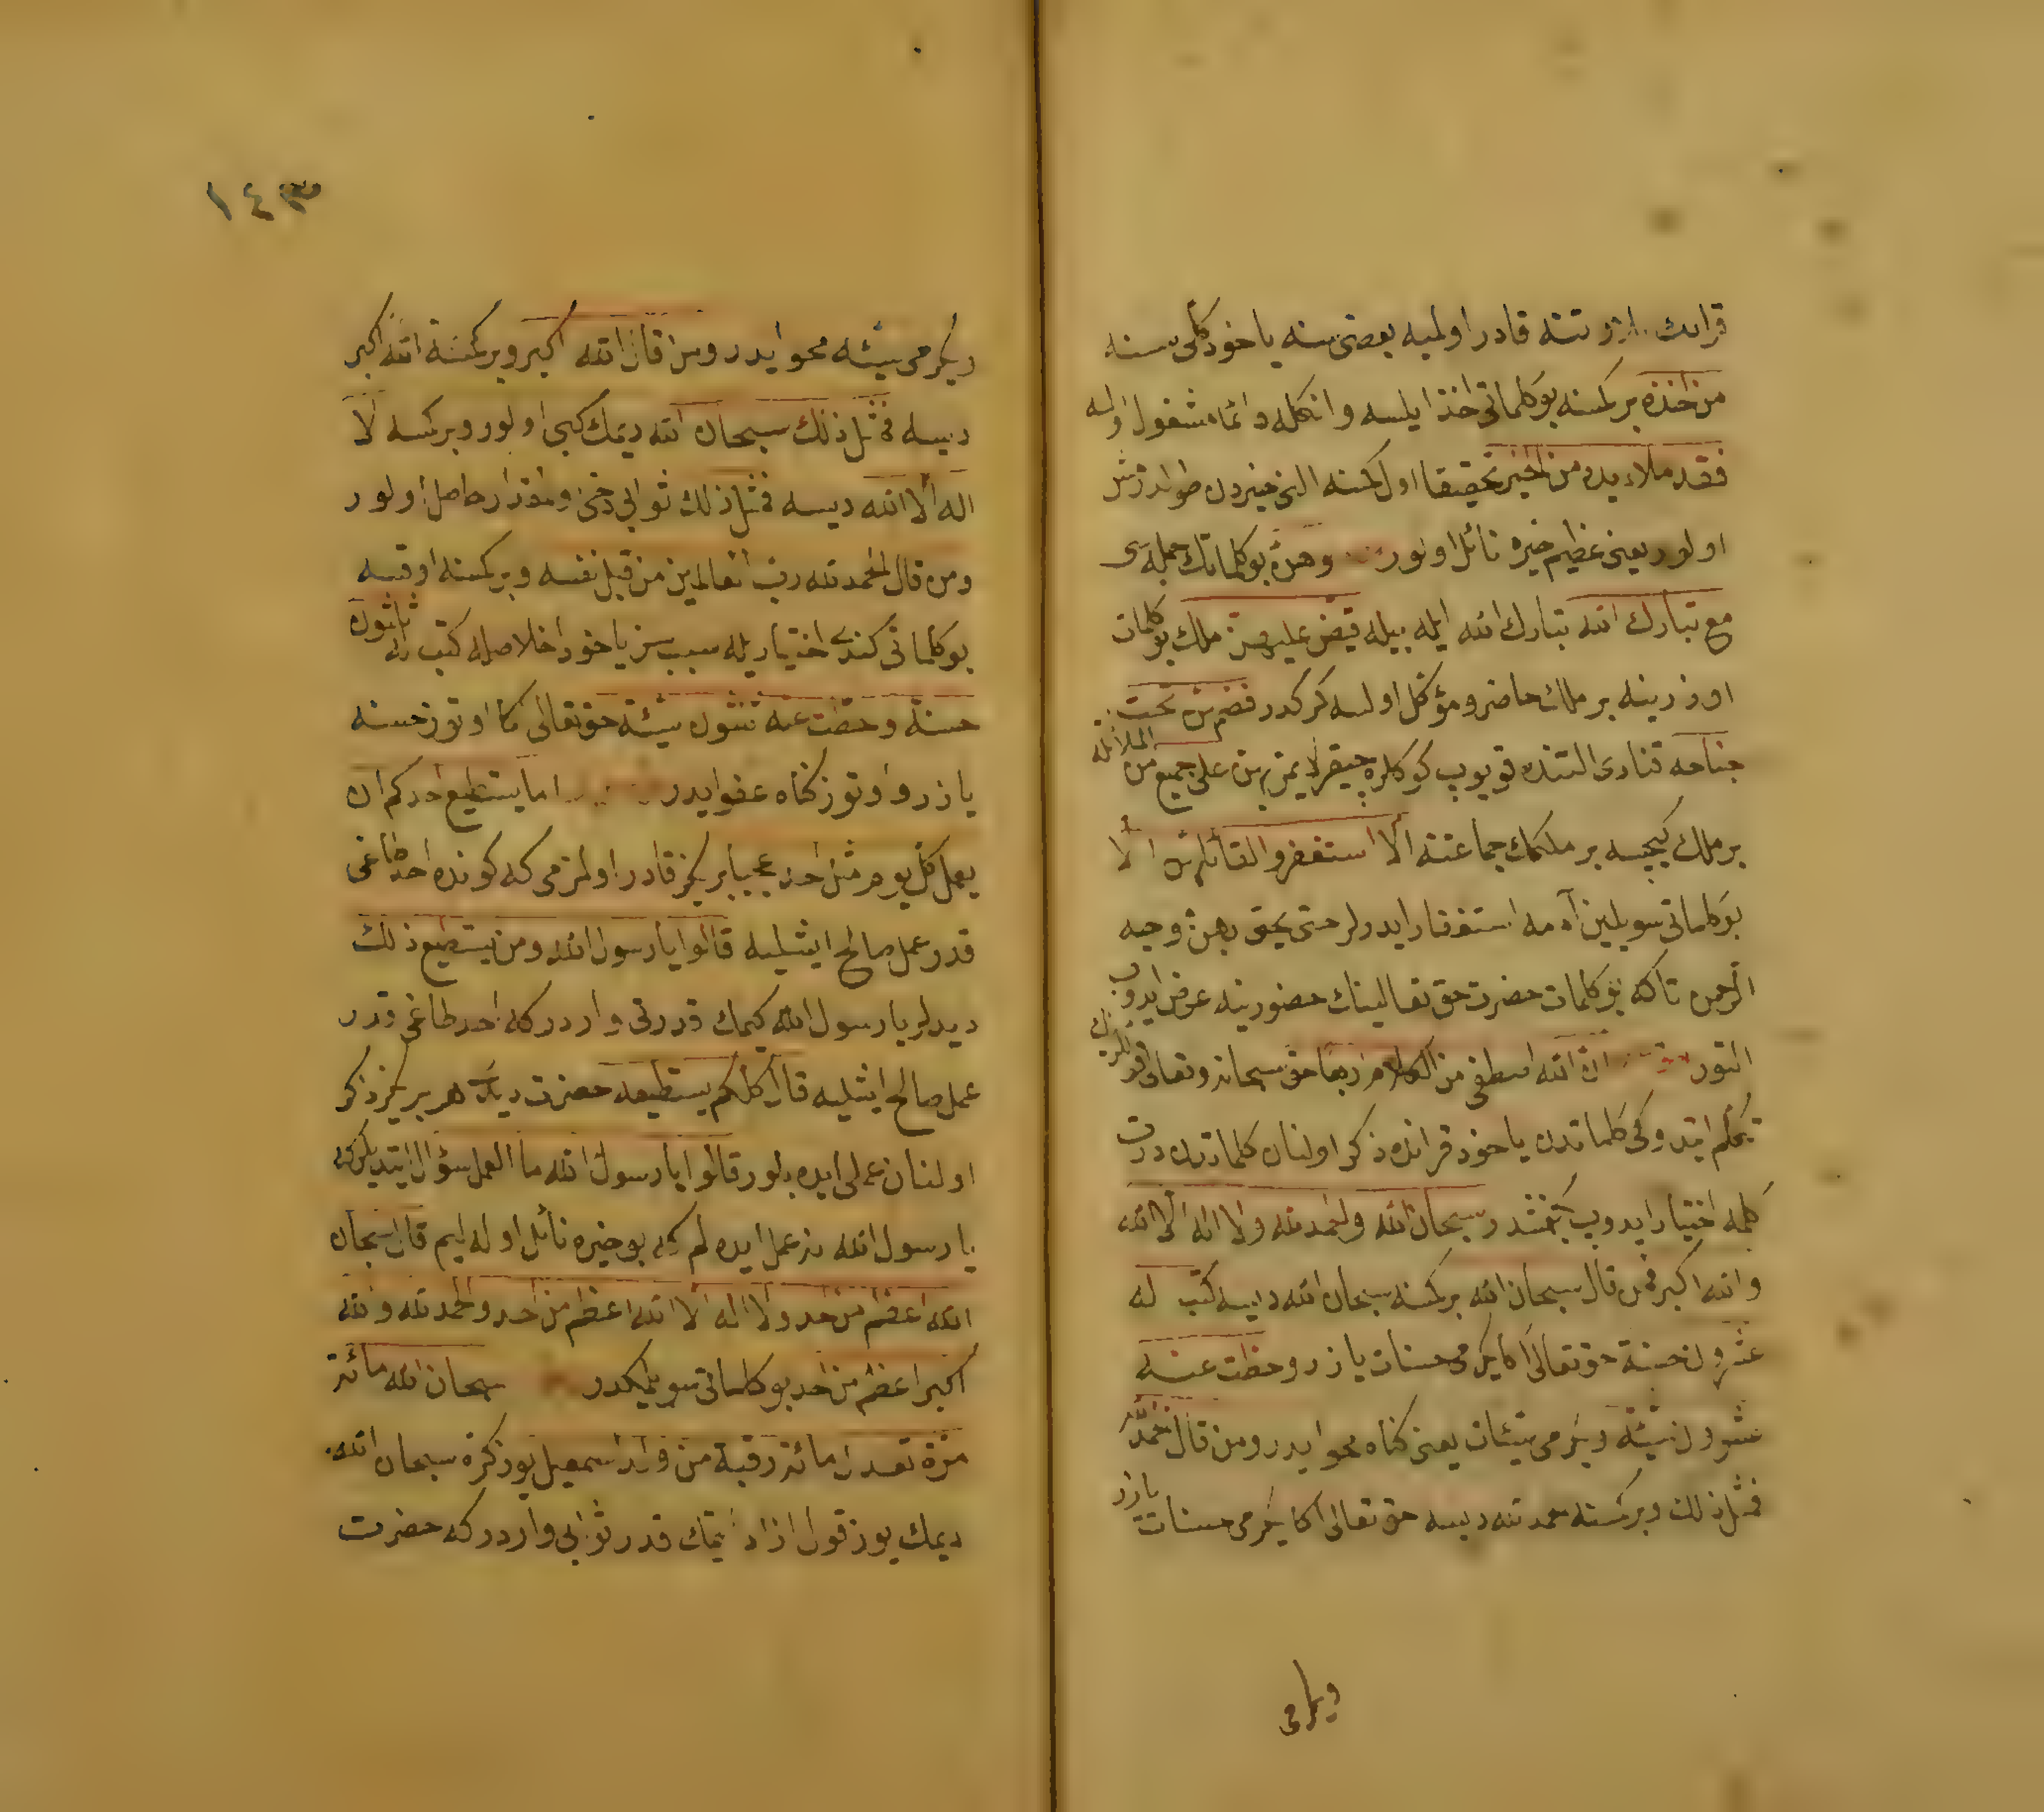 قرانك قادر اولميه بعضی سنه ياخود كلی سنه
من اخذه بر كمسنه بو كلماتی اخذ ايلسه وانكله دائما مشغول اوله
فقد ملاء يده من الخير تحقيقا اول كمسنه الی خيردن طولدرمش
اولور يعنی عظيم خيره نائل اولور وهن بو كلماتك جمله سی
مع تبارك الله تبارك الله ايله بيله قبض عليهن ملك بو كلمات
اوزرينه بر ملك حاضر و مؤكل اولسه كركدر فضمهن تحت
جناحه قنادی التنده قويوب كوكلره چيقر لا يمر بهن علی جميع من الملائكة
بر ملك كيچسه بر ملكك جماعتنه الا استغفروا لقائلهن الا
بو كلماتی سويلين آدمه استغفار ايدرلر حتی يحيی بهن وجه
الرحمن تاكه بو كلمات حضرت حق تعالينك حضورينه عرض ايدوب
ان الله اصطفی من الكلام اربعا حق سبحانه وتعالی
تكلم ايتدوكی كلماتدن ياخود قرانده ذكر اولنان كلماتدن درت
كلمه اختيار ايدوب سبحان الله والحمد لله ولا اله الا الله
والله اكبر فمن قال سبحان الله بر كمسنه سبحان الله ديسه كتب له
عشرون حسنة حق تعالی اكا يكرمی حسنات يازر وحطت عنه
عشرون سيئة ويكرمی سيئات يعنی كناه محو ايدر ومن قال الحمد لله
فمثل ذلك وبر كمسنه حمد لله ديسه حق تعالی اكا يكرمی حسنات يازر
ويكرمی
١٤٣
ويكرمی سيئه محو ايدر ومن قال الله اكبر وبر كمسنه الله اكبر
ديسه فمثل ذلك سبحان الله ديمك كبی اولور وبر كمسنه لا
اله الا الله ديسه فمثل ذلك ثوابی دخی ومقدار حاصل اولور
ومن قال الحمد لله رب العالمين من قبل نفسه وبر كمسنه اوقسه
بو كلماتی كندی اختياريله سبب سز ياخود اخلاصله كتب له ثلثون
حسنة وحطت عنه ثلثون سيئة حق تعالی اكا اوتوز حسنه
يازر و اوتوز كناه عفو ايدر اما يستطيع احدكم ان
يعمل كل يوم مثل احد عجبا بريكز قادر اولمزمی كه كونده احد طاغی
قدر عمل صالح ايشليه قالوا يا رسول الله ومن يستطيع ذلك
ديديلر يا رسول الله كيمك قدرتی واردر كه احد طاغی قدر
عمل صالح ايشليه قال كلكم يستطيعه حضرت ديدی هر بريكز ذكر
اولنان عملی ايده بلور قالوا يا رسول الله ما العمل سؤال ايتديلر كه
يا رسول الله نه عمل ايده لم كه بو خيره نائل اوله ليم قال سبحان
الله اعظم من احد ولا اله الا الله اعظم من احد والحمد لله والله
اكبر اعظم من احد بو كلماتی سويلمكدر سبحان الله مائة
مرة تعدل مائة رقبة من ولد اسمعيل يوز كره سبحان الله
ديمك يوز قول ازاد ايتمك قدر ثوابی واردر كه حضرت